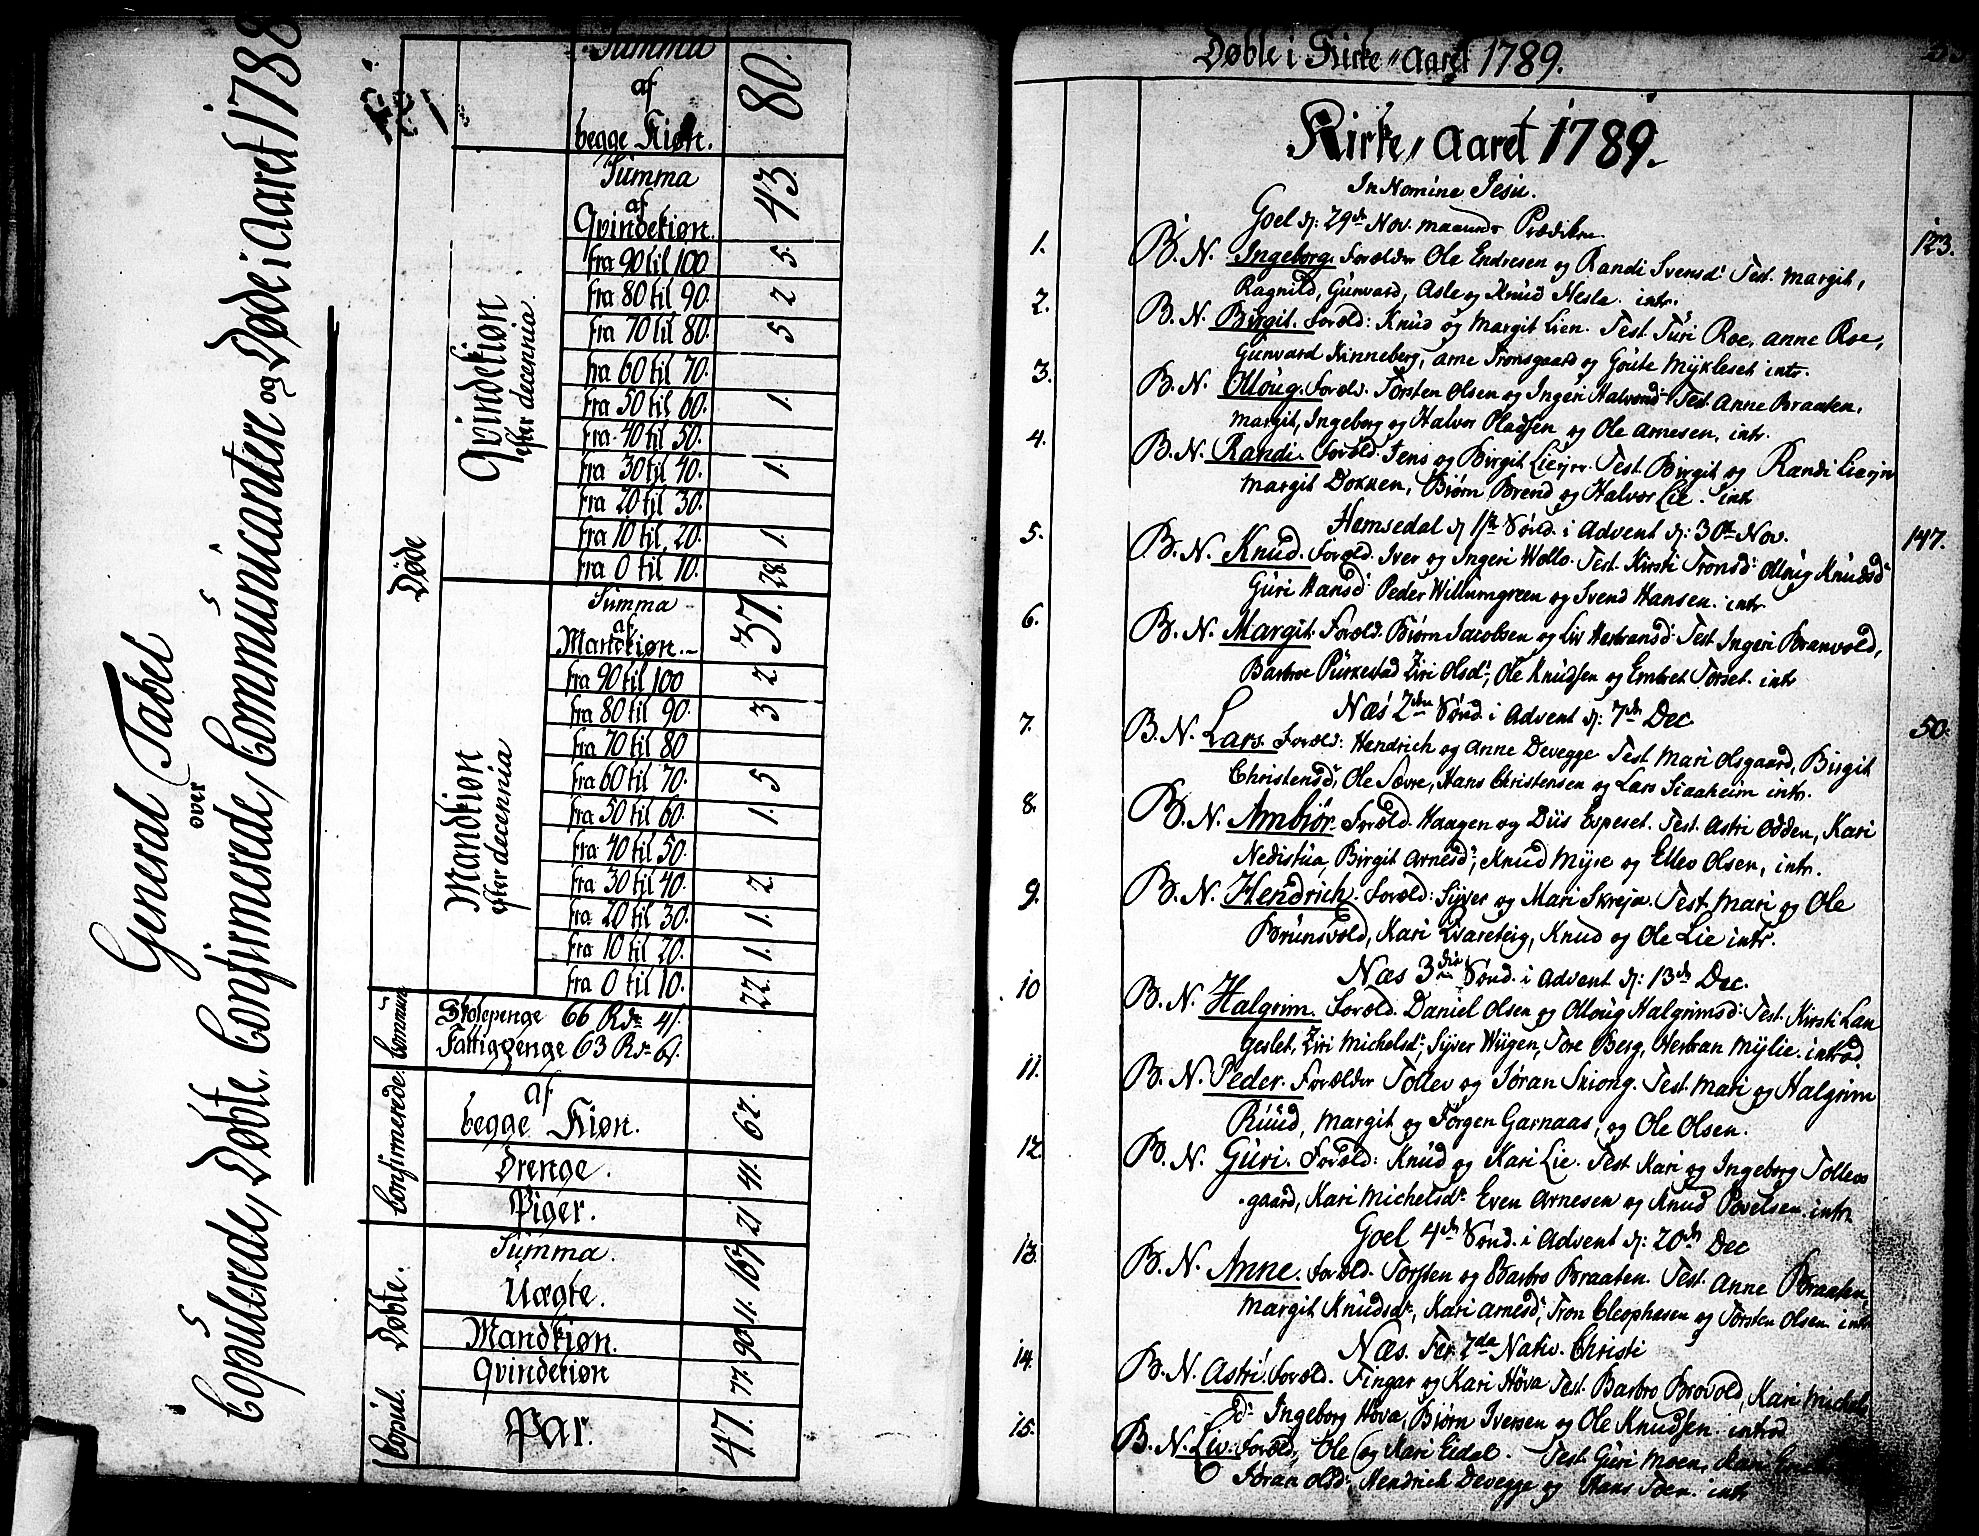 General Tabel
over
Copulerede, Døbte, Confirmerede, Communicantere og Døde i Aaret 1788
Copul.
Par. 47.
Døbte.
Qvindekiøn 77.
Mandkiøn. 90.
Uægte. 11.
Summa. 167.
Confirmerede.
Piger. 21
Drenge. 41.
af
begge Kiøn. 62.
Commun.
Skolepenge 66 Rdr 4 s.
Fattigpenge 63 Rdr 6 s.
Døde
Mandkiøn
efter decennia
fra 0 til 10. 22.
fra 10 til 20. 1.
fra 20 til 30. 1.
fra 30 til 40. 2.
fra 40 til 50.
fra 50 til 60. 1.
fra 60 til 70. 5
fra 70 til 80
fra 80 til 90. 3
fra 90 til 100 2
Summa
af
Mandkiøn. 37.
Qvindekiøn
efter decennia.
fra 0 til 10. 28.
fra 10 til 20. 1.
fra 20 til 30.
fra 30 til 40. 1.
fra 40 til 50.
fra 50 til 60. 1.
fra 60 til 70.
fra 70 til 80. 5
fra 80 til 90. 2
fra 90 til 100 5.
Summa
af
Qvindekiøn. 43.
Summa
af
begge Kiøn. 80.
Døbte i Kirke-Aaret 1789.
Kirke-Aaret 1789.
In Nomine Jesu.
Goel d: 29de Nov. maaneds Prædiken 123.
1. B. N. Ingeborg. Forældr Ole Endresen og Randi Svensd: Test. Margit,
Ragnild, Gunvard, Asle og Knud Hesla. intr.
2. B. N. Birgit. Foræld: Knud og Margit Lien. Test. Turi Roe, Anne Roe,
Gunvard Kinneberg, Arne Tronsgaard og Goute Mykleset intr.
3. B. N. Olloug. Foræld. Torsten Olsen og Ingeri Halvorsd: Test. Anne Braaten,
Margit, Ingeborg og Halvor Oladsen og Ole Arnesen, intr.
4. B. N. Randi. Foræld. Jens og Birgit Lieyrr. Test. Birgit og Randi Lieyrr
Margit Dokken, Biørn Brend og Halvor Lie. intr
Hemsedal d. 1ste Sønd. i Advent d: 30te Nov. 147.
5. B. N. Knud. Foræld. Iver og Ingeri Wollo. Test. Kirsti Tronsd: Olloug Knudsd:
Guri Hansd: Peder Willumgreen og Svend Hansen. intr
6. B. N. Margit. Foræld. Biørn Jacobsen og Liv Herbransd: Test. Ingeri Branvold,
Barbroe Purkestad Ziri Olsd:, Ole Knudsen og Embret Torset. intr
Næs 2den Sønd. i Advent d: 7de Dec 50.
7. B. N. Lars. Foræld: Hendrich og Anne Devegge Test. Mari Olsgaard, Birgit
Christensd:, Ole Sævre, Hans Christensen og Lars Siaaheim intr.
8. B. N. Ambiør. Foræld. Haagen og Diis Espeset. Test. Astri Odden, Kari
Nedistua, Birgit Arnesd:, Knud Myre og Ellev Olsen, intr.
9. B. N. Hendrich. Foræld: Syver og Mari Skreja. Test. Mari og Ole
Brunsvold, Kari Qvareteig, Knud og Ole Lie intr.
Næs 3die Sønd. i Advent d: 13de Dec.
10 B. N. Halgrim. Foræld. Daniel Olsen og Olloug Halgrimsd: Test. Kirsti Lan
geslet, Ziri Michelsd:, Syver Wiigen, Tore Berg, Herbran Mylie. introd
11. B. N. Peder. Forældr Tollev og Jøran Skiong. Test. Mari og Halgrim
Ruud, Margit og Jørgen Garnaas, og Ole Olsen.
12. B. N. Guri. Foræld: Knud og Kari Lie. Test Kari og Ingeborg Tollevs
gaard, Kari Michelsd: Even Arnesen og Knud Povelsen. intr.
Goel 4de Sønd. i Advent d: 20de Dec
13. B. N. Anne. Foræld. Torsten og Barbro Braaten. Test. Anne Braaten,
Margit Knudsd:, Kari Arnesd:, Tron Cleophasen og Torsten Olsen. intr
Næs. Fer. 2da Nativ. Christi
14. B. N. Astri. Foræld. Fingar og Kari Høva Test. Barbro Brovold, Kari Michels
d: Ingeborg Høva, Biørn Iversen og Ole Knudsen. introd
15. B. N. Liv. Foræld, Ole og Kari Eidal. Test. Guri Moen, Kari
Jøran Olsd:, Hendrich Devegge og Hans Toen. intr